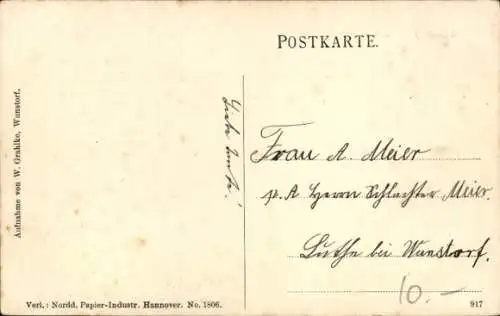 POSTKARTE.
Aufnahme von W. Grahlke, Wunstorf.
Frau A. Meier
p. A Herrn Schlachter Meier.
Luthe bei Wunstorf.
10.—
Verl.: Nordd. Papier-Industr. Hannover. No. 1806.
917